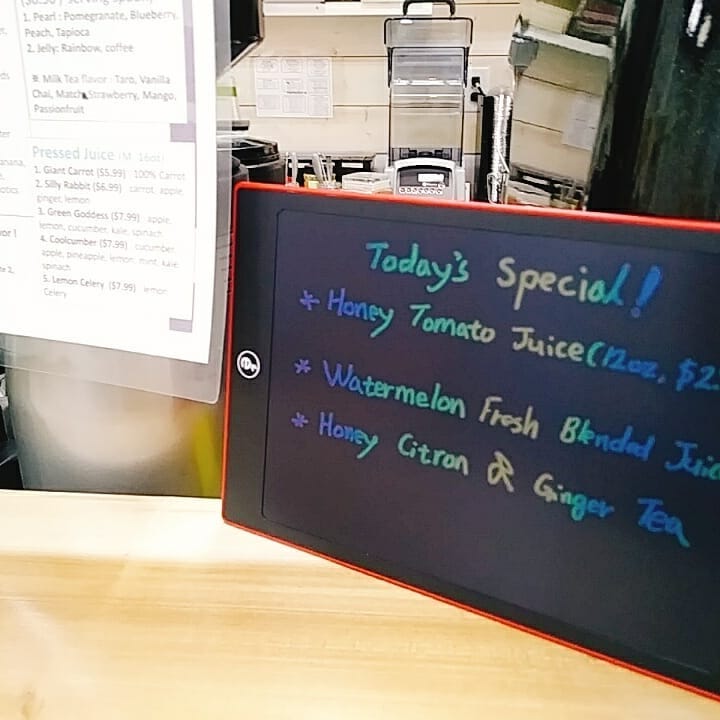 1. Pearl : Pomegranate, Blueberry,
Peach, Tapioca
2. Jelly: Rainbow, coffee
※ Milk Tea flavor : Taro, Vanilla
Chai, Matcha, Strawberry, Mango,
Passionfruit
Pressed Juice (M 16oz)
1. Giant Carrot ($5.99) : 100% Carrot
2. Silly Rabbit ($6.99) carrot, apple,
ginger, lemon
3. Green Goddess ($7.99) apple,
lemon, cucumber, kale, spinach
4. Coolcumber ($7.99) : cucumber,
apple, pineapple, lemon, mint, kale
spinach
5. Lemon Celery ($7.99) lemon
Celery
Today's Special!
* Honey Tomato Juice (12oz, $2
* Watermelon Fresh Blended Juic
* Honey Citron & Ginger Tea